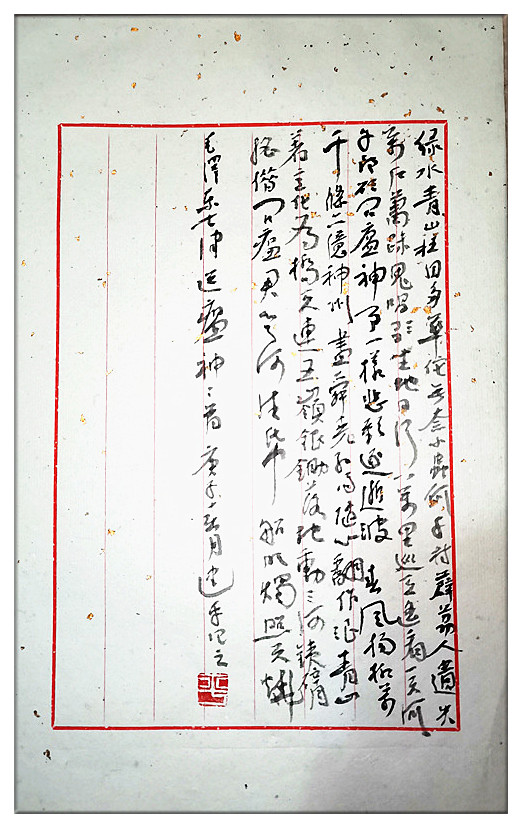 绿水青山枉自多華佗無奈小蟲何千村薜荔人遺矢
萬户蕭疏鬼唱歌坐地日行八萬里巡天遥看一千河
牛郎欲問瘟神事一樣悲歡逐逝波春風楊柳萬
千條六億神州盡舜尧紅雨随心翻作浪青山
着意化為橋天連五嶺銀鋤落地動三河鐵臂
摇借问瘟君欲何往纸船明燭照天燒
毛澤东七律送瘟神二首庚子